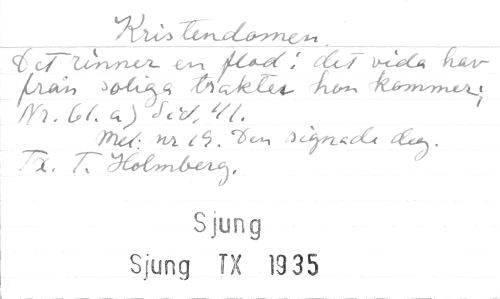 Kristendomen.
Det rinner en flod i det vida hav
från soliga trakter hon kommer;
Nr. 61. a) Sid. 41.
Mel. nr 19. Den signade dag.
Tx. T. Holmberg.
Sjung
Sjung TX 1935